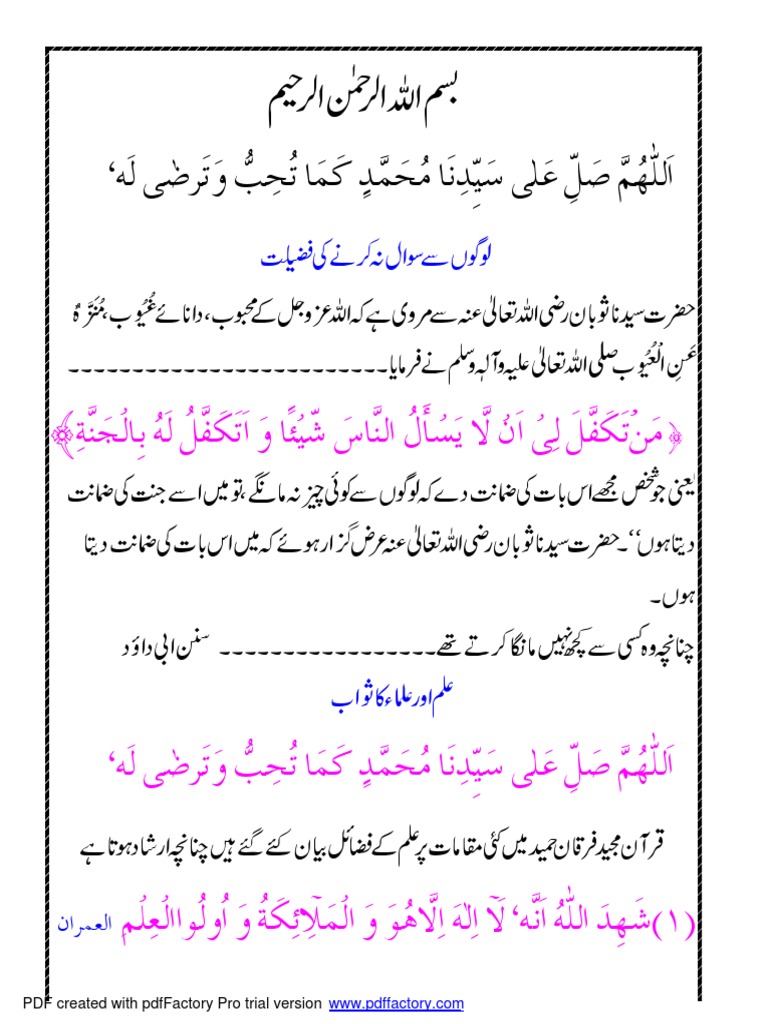 بسم اللہ الرحمٰن الرحیم
اَللّٰهُمَّ صَلِّ عَلٰی سَيِّدِنَا مُحَمَّدٍ کَمَا تُحِبُّ وَتَرضٰی لَه‘
لوگوں سے سوال نہ کرنے کی فضیلت
حضرت سیدنا ثوبان رضی اللہ تعالیٰ عنہ سے مروی ہے کہ اللہ عزوجل کے محبوب، دانائے غُیُوب، مُنَزَّہٌ
عَنِ الْعُیُوب صلی اللہ تعالیٰ علیہ وآلہٖ وسلم نے فرمایا۔۔۔۔۔۔۔۔۔۔۔۔۔۔۔۔۔۔۔۔۔۔۔۔۔
﴿مَنْ تَکَفَّلَ لِیْ اَنْ لَّا يَسْأَلُ النَّاسَ شَيْئًا وَ اَتَکَفَّلُ لَهُ بِالْجَنَّةِ﴾
یعنی جو شخص مجھے اس بات کی ضمانت دے کہ لوگوں سے کوئی چیز نہ مانگے، تو میں اسے جنت کی ضمانت
دیتا ہوں‘‘۔ حضرت سیدنا ثوبان رضی اللہ تعالیٰ عنہ عرض گزار ہوئے کہ میں اس بات کی ضمانت دیتا
ہوں۔
چنانچہ وہ کسی سے کچھ نہیں مانگا کرتے تھے۔۔۔۔۔۔۔۔۔۔۔۔۔۔۔۔۔ سنن ابی داؤد
علم اور علماء کا ثواب
اَللّٰهُمَّ صَلِّ عَلٰی سَيِّدِنَا مُحَمَّدٍ کَمَا تُحِبُّ وَتَرضٰی لَه‘
قرآن مجید فرقان حمید میں کئی مقامات پر علم کے فضائل بیان کئے گئے ہیں چنانچہ ارشاد ہوتا ہے
(۱) شَهِدَ اللّٰهُ اَنَّه‘ لَآ اِلٰهَ اِلَّاهُوَ وَ الْمَلٰٓئِکَةُ وَ اُولُواالْعِلْمِ العمران
PDF created with pdfFactory Pro trial version www.pdffactory.com